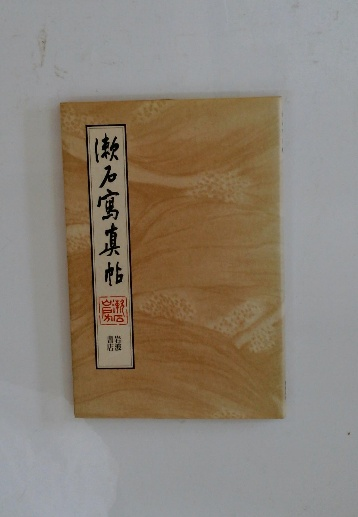 漱石寫真帖
岩波
書店